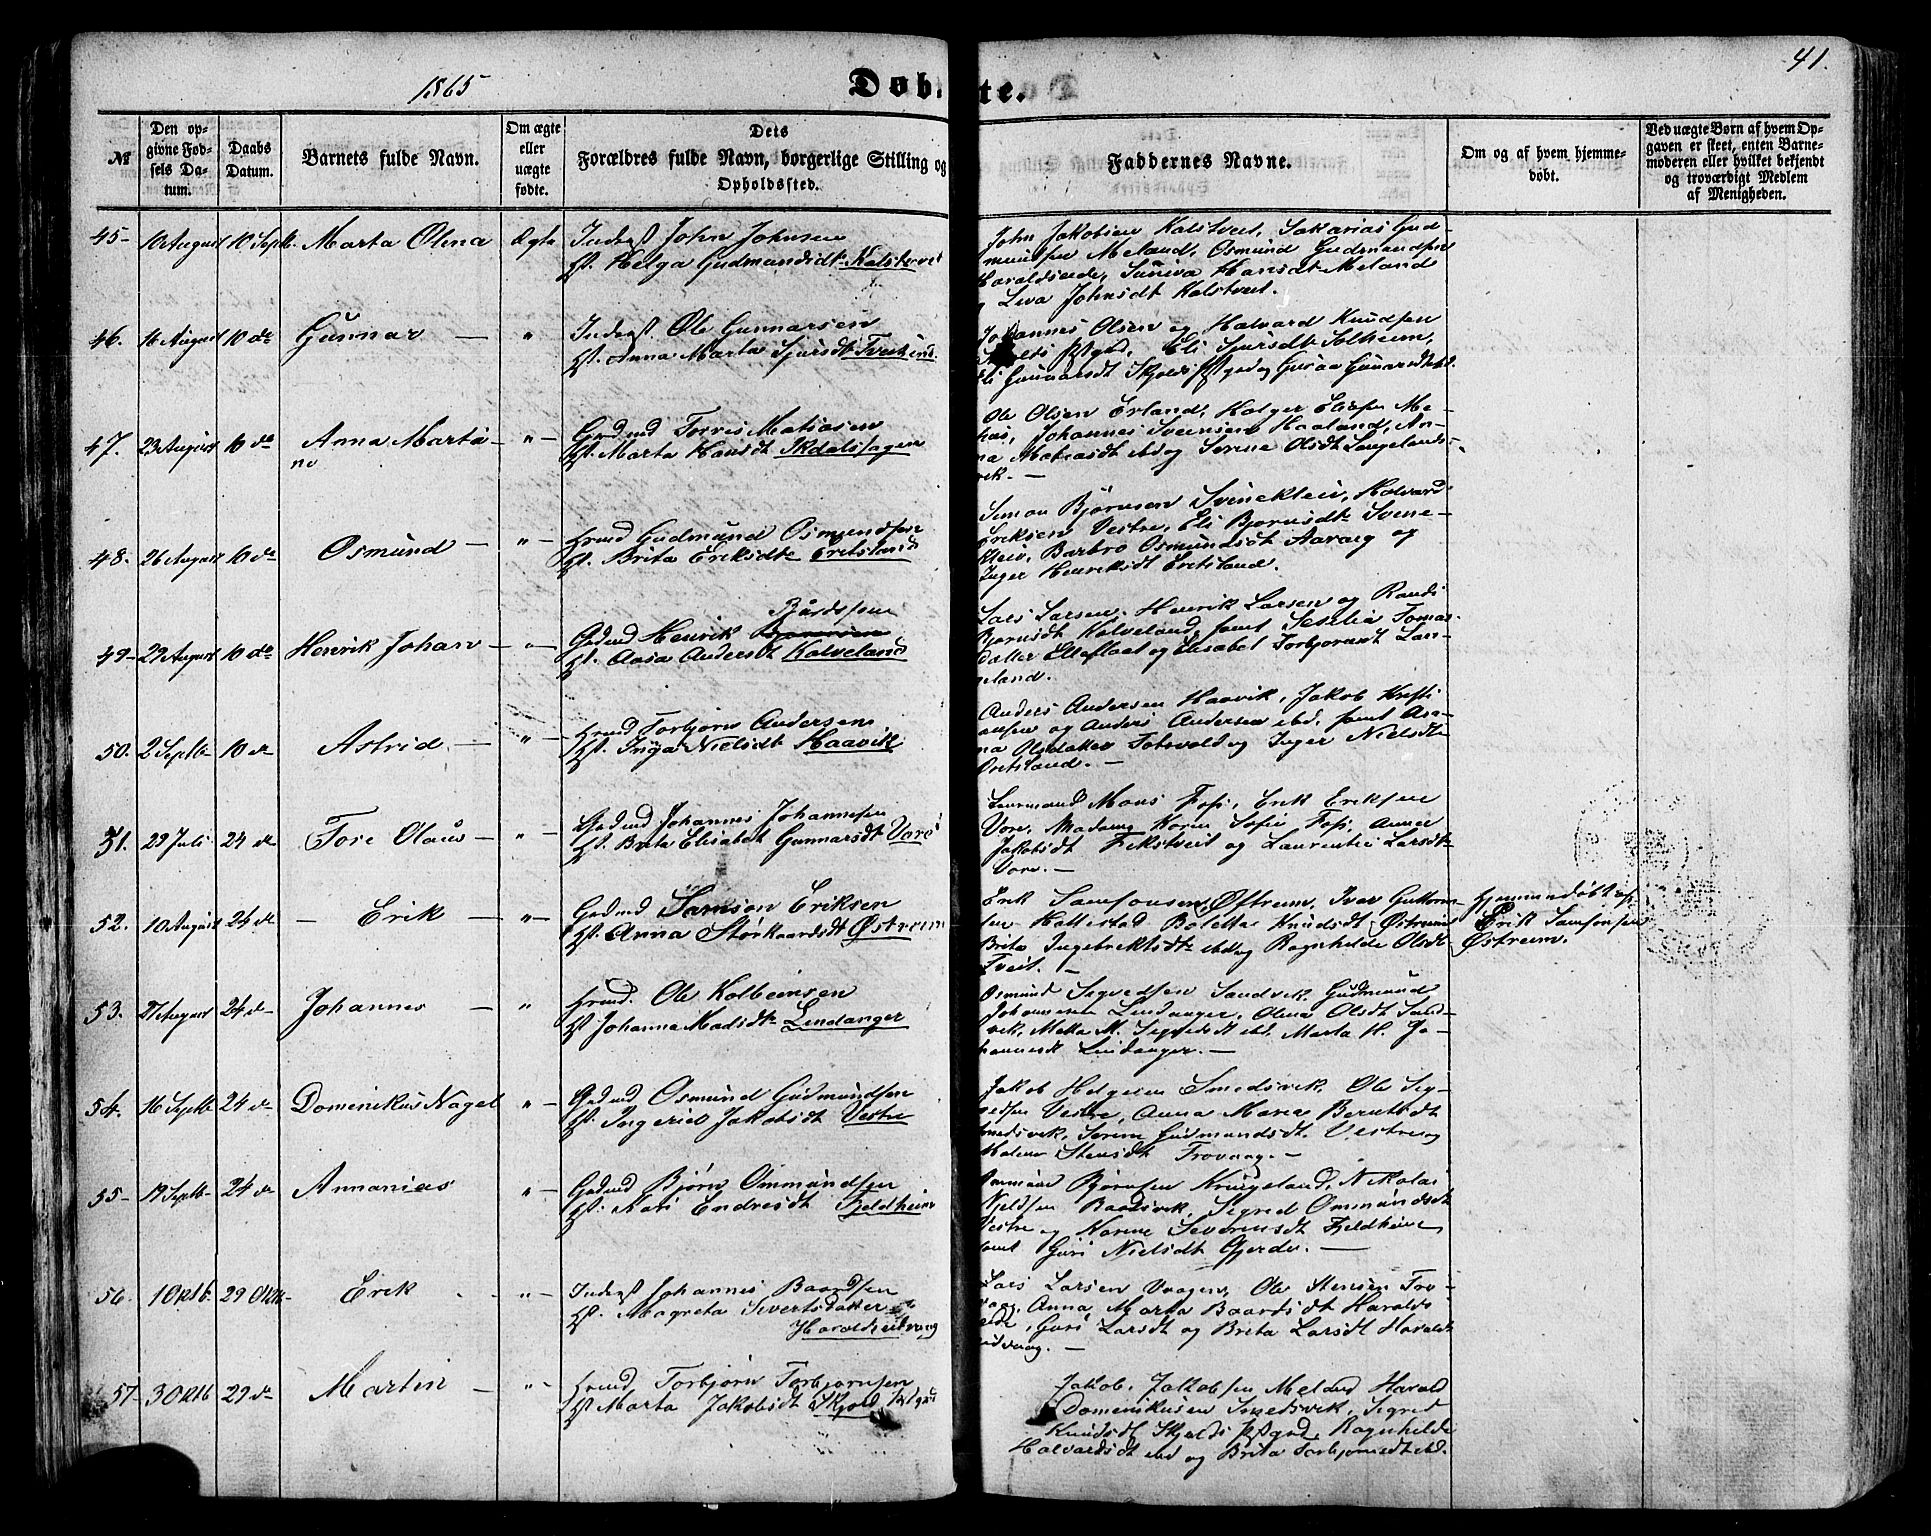 41.
1865
Døbte.
№
Den opgivne Fødsels Datum.
Daabs Datum.
Barnets fulde Navn.
Om ægte eller uægte fødte.
Dets Forældres fulde Navn, borgerlige Stilling og Opholdssted.
Faddernes Navne.
Om og af hvem hjemmedøbt.
Ved uægte Børn af hvem Opgaven er skeet, enten Barnemoderen eller hvilket bekjendt og troværdigt Medlem af Menigheden.
45- 10 August 10 Septb. Marta Olena Ægte Inderst John Johnsen
Helga Gudmundsdt
John Jakobsen Kalstveit, Sakarias Gud-
mundsen Meland, Osmund Gudmundsen
Haraldseide, Suniva Hansdt Meland
Johnsdt Kalstveit.
46. 16 August 10 de Gunnar — " Inderst Ole Gunnarsen
Anna Marta Sjursdt
Johannes Olsen og Halvard Knudsen
Eli Sjursdt Solheim,
Eli Gunnarsdt
47. 23 August 10 de Anna Marta- " — Gadmd Torris Matiasen
ne Marta Hansdt
Ole Olsen Erland, Holger
Johannes Svensen Haaland, An-
na Matiasdt ibd og Serine Olsdt Langelands-
vik. —
48. 26 August 10 de Osmund — " — Gudmund Osmundsen
Brita Eriksdt
Simon Bjørnsen Svinekleiv, Halvard
Eriksen Vestre, Eli Bjørnsdt Svine-
kleiv, Barbro Osmundsdt Aarvig og
Inger Henriksdt
49- 29 August 10 de Henrik Johan — " — Bårdssen
Gadmd Henrik
Aasa Andersdt Kalveland
Lars Larsen, Henrik Larsen og Randi
Bjørnsdt Kalveland, samt Seselia Tomas-
datter og Elisabet Torbjørnsdt Lan-
geland.
50. 2 Septb 10 de Astrid. — " — Torbjørn Andersen
Inga Nielsdt Haavik
Anders Andersen Haavik, Jakob Kristi
ansen og Anders Andersen ibd. samt An-
na Olsdatter og Inger Nielsdt
51. 29 Juli 24 de Tore Olaus — " — Gadmd Johannes Johannesen
Brita Elisabet Gunnarsdt Vore
Mons Foss, Erik Eriksen
Vore, Madam Karen Sofie Foss, Anna
Jakobsdt og Laurentse Larsdt
Vore. —
52. 10 August 24 de — Erik — " — Gadmd Samson Eriksen
Anna Størkaardsdt Østreim
Erik Samsonsen Østreim, Iver Guttorm-
sen Hattestad Boletta Knudsdt Østreim
Brita Ingebrektsdt ibd og Ragnhilde Olsdt
Tveit. —
Hjemmedøbt af
Erik Samsonsen
Østreim.
53. 27 August 24 de Johannes — " Ole Kolbeinsen
Johanna Madsdt Lindanger
Osmund Segvedsen Sandvik. Gudmund
Johannesen Lindanger, Olena Olsdt Sand-
vik, Malla M. ibd. Marta H. Jo-
hannesdt Lindanger. —
54. 16 Septb 24 de Domenikus Nagel " — Gadmd Osmund Gudmundsen
Ingerid Jakobsdt Vestre
Jakob Helgesen Smedsvik, Ole Seg-
vedsen Vestre, Anna Maria Berntsdt
Smedsvik, Serine Gudmundsdt Vestre og
Stensdt Trovaag. —
55- 19 Septb. 24 de Annanias " — Gadmd Bjørn Ommundsen
Kari Endresdt Fjeldheim
Ommund Bjørnsen Kringeland, Nikolai
Baadsvik, Segred Ommundsdt
Vestre og Karine Severinsdt Fjeldheim
samt Guri Nielsdt Gjerde. —
56. 1 Oktb. 29 Oktb. Erik " — Inderst Johannes Baardsen
Magreta Sivertsdatter
Haraldseidvaag
Lars Larsen Vaagen, Ole Stensen Tro-
vaag, Anna Marta Baardsdt Haralds
eide, Guri Larsdt og Brita Larsdt Haralds
eidvaag. —
57. 3 Oktb 29 de Martin — " — Torbjørn Torbjørnsen
Marta Jakobsdt Skjold
Jakob Jakobsen Meland Harald
Domenikusen Smedsvik, Segred
Knudsdt Skjolds Ragnhilde
Halvardsdt ibd og Brita Torbjørnsdt ibd.